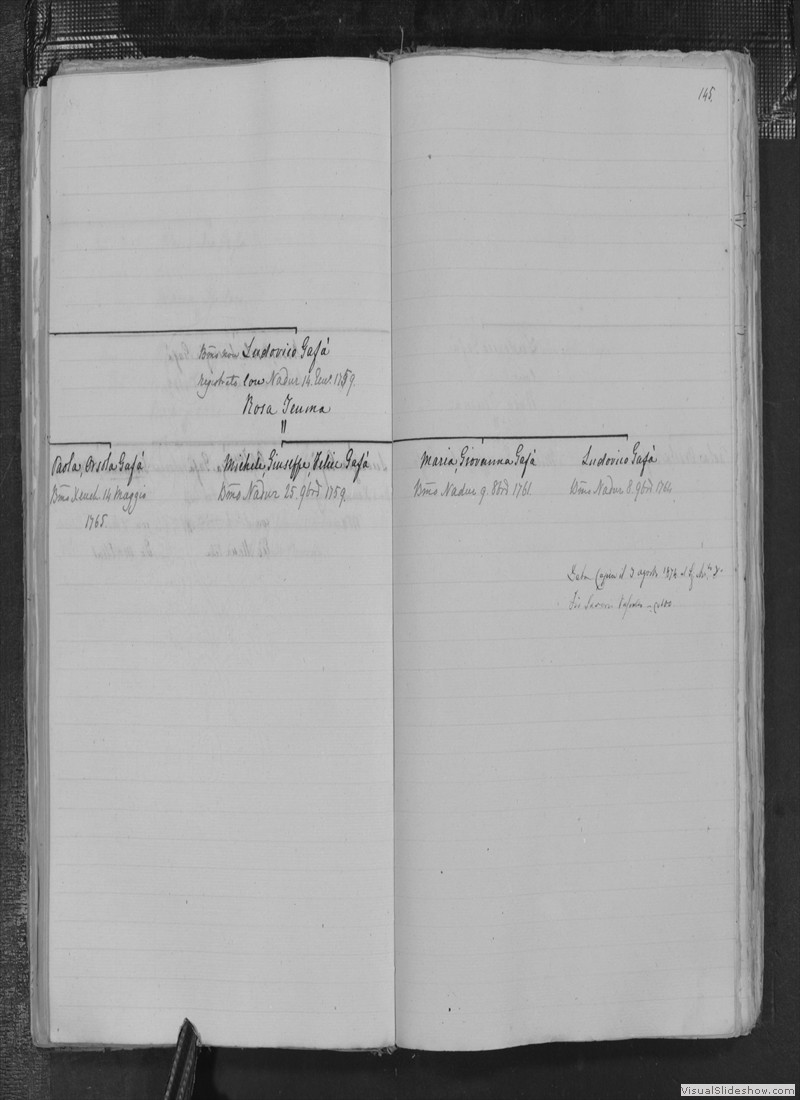 145.
Ludovico Gafà
registrato con Nadur 14. Genr. 1759.
Rosa Teuma
Paola, Orsola Gafà
Bmo Xeuch. 14 Maggio
1765
Michele, Giuseppe, Felice Gafà
Bmo Nadur 25. 9bre 1759
Maria, Giovanna Gafà
Bmo Nadur 9. 8bre 1761
Ludovico Gafà
Bmo Nadur 8. 9bre 1764
Data Copia il 3 agosto 1874
VisualSlideshow.com